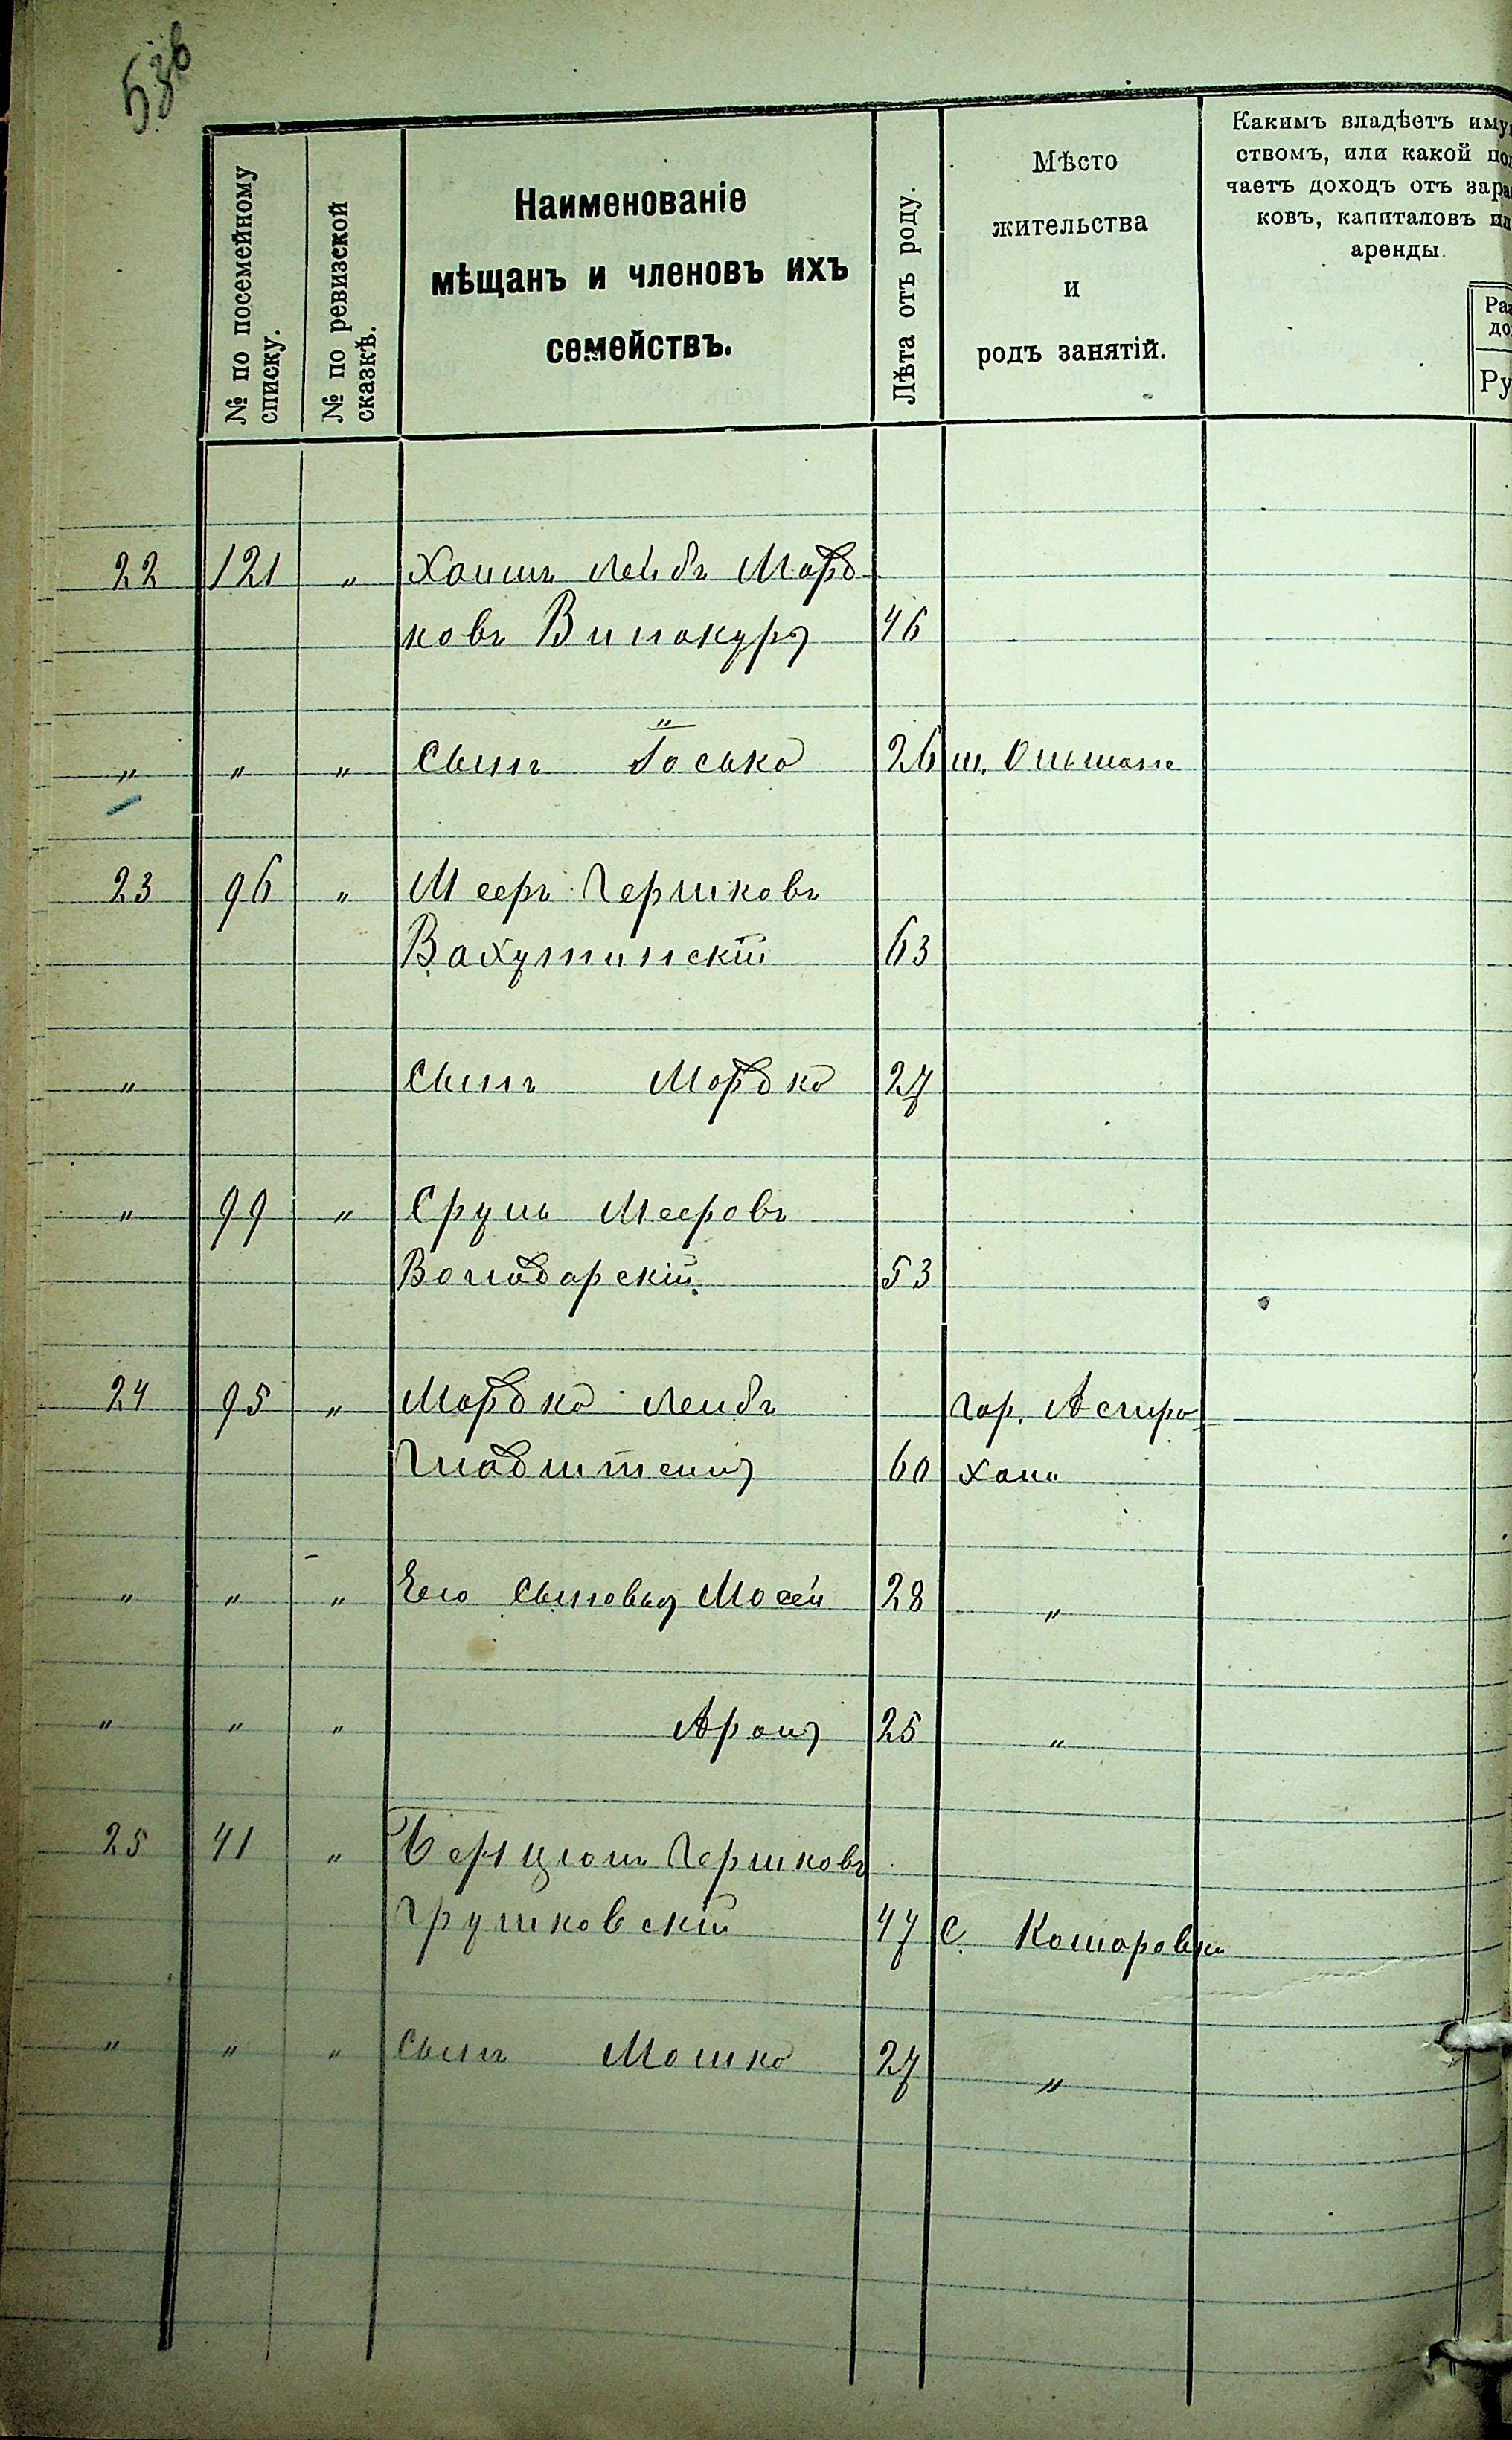 536
№ по посемейному
списку.
№ по ревизской
сказкѣ.
Наименованіе
мѣщанъ и членовъ ихъ
семействъ.
Лѣта отъ роду.
Мѣсто
жительства
и
родъ занятій.
Какимъ владѣетъ иму
ствомъ, или какой пол
чаетъ доходъ отъ зара
ковъ, капиталовъ ил
аренды.
Раз
до
Ру
22 121 " Хаимъ Лейбъ Морд
ковъ Винокуръ 46
" " " Сынъ Іосько 26 м. Ольшана
23 96 " Мееръ Гершковъ
Вахутинскій 63
" Сынъ Мордко 27
" 99 " Сруль Мееровъ
Володарскій 53
24 95 " Мордко Лейбъ гор. Астра
Гладштейнъ 60 хань
" " " Его Сыновья Мосей 28 "
" " " Аронъ 25 "
25 41 " Бенціонъ Гершковъ
Грушковскій 47 С. Комаровки
" " " Сынъ Мошко 27 "